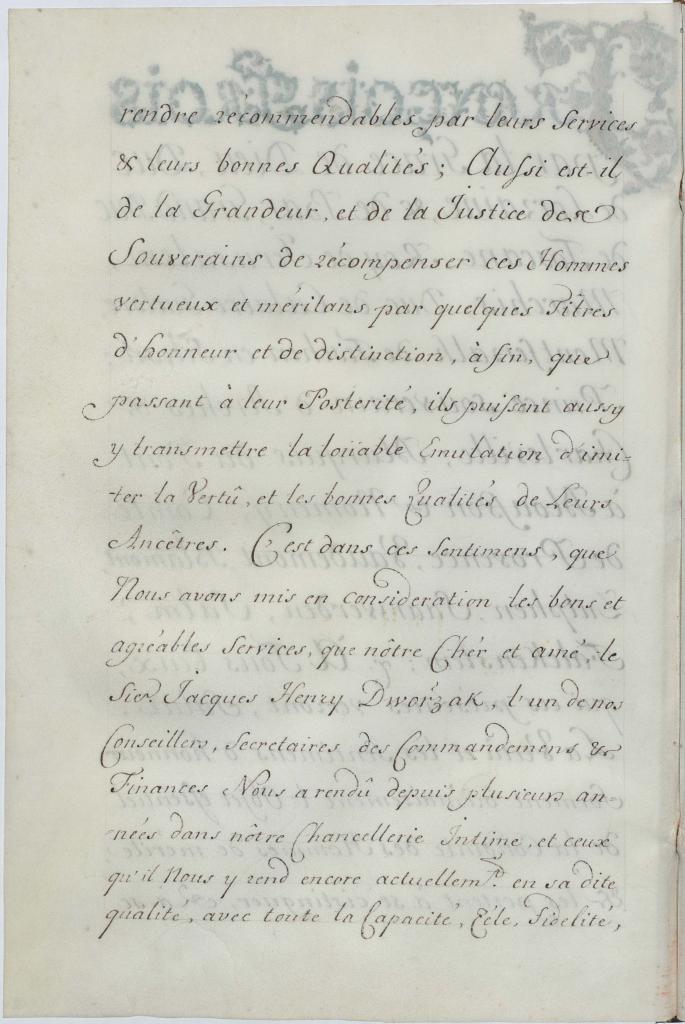 rendre récommendables par leurs Services
& leurs bonnes Qualités; Aussi est-il
de la Grandeur, et de la Justice des
Souverains de récompenser ces Hommes
vertueux et méritans par quelques Titres
d'honneur et de distinction, à fin, que
passant à leur Posterité, ils puissent aussy
y transmettre la loüable Emulation d'imi-
-ter la Vertû, et les bonnes Qualités de Leurs
Ancêtres. C'est dans ces Sentimens, que
Nous avons mis en Consideration les bons et
agréables Services, que nôtre Chér et amé, le
Sier. Jacques Henry Dworžak, l'un de nos
Conseillers, Secretaires des Commandemens &
Finances Nous a rendû depuis plusieurs an-
-nées dans nôtre Chancellerie Intime, et ceux
qu'il Nous y rend encore actuellemt. en sa dite
qualité, avec toute la Capacité, Zéle, Fidelité,